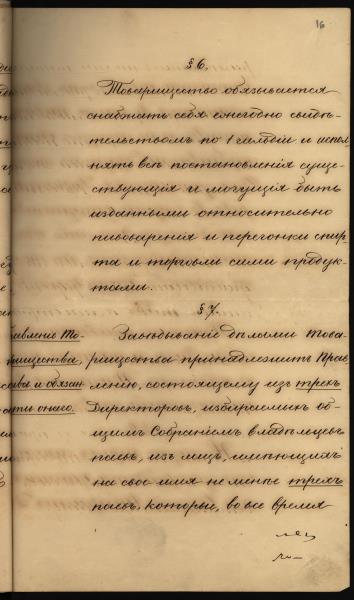 16
§ 6.
Товарищество обязывается
снабжать себя ежегодно свидѣ-
тельствомъ по 1 гильдіи и испол-
нять всѣ постановленія суще-
ствующія и могущія быть
изданными относительно
пивоваренія и перегонки спир-
та и торговли сими продук-
тами.
§ 7.
Завѣдываніе дѣлами Това-
рищества принадлежитъ Прав-
ленію, состоящему изъ трехъ
Директоровъ, избираемыхъ об-
щимъ Собраніемъ владѣльцевъ
паевъ, изъ лицъ, имѣющихъ
на свое имя не менѣе трехъ
паевъ, которые, во все время
авленіе То-
рищества,
ва и обязан-
сти онаго.